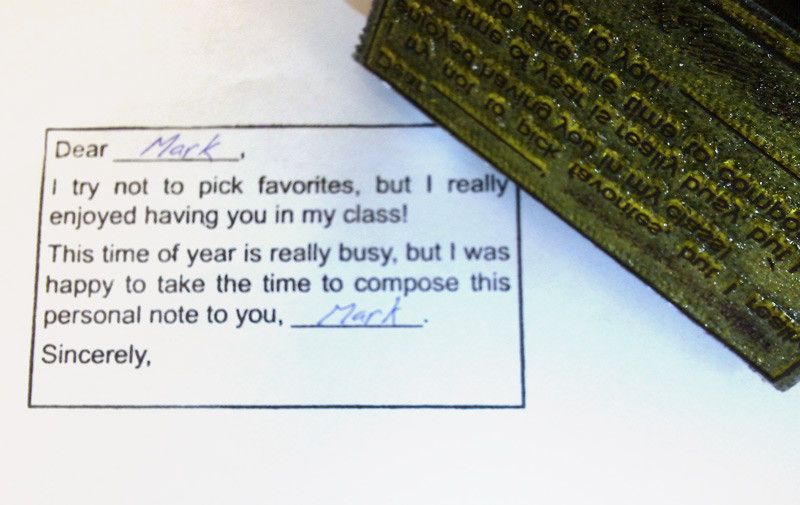 Dear Mark,
I try not to pick favorites, but I really
enjoyed having you in my class!
This time of year is really busy, but I was
happy to take the time to compose this
personal note to you, Mark.
Sincerely,